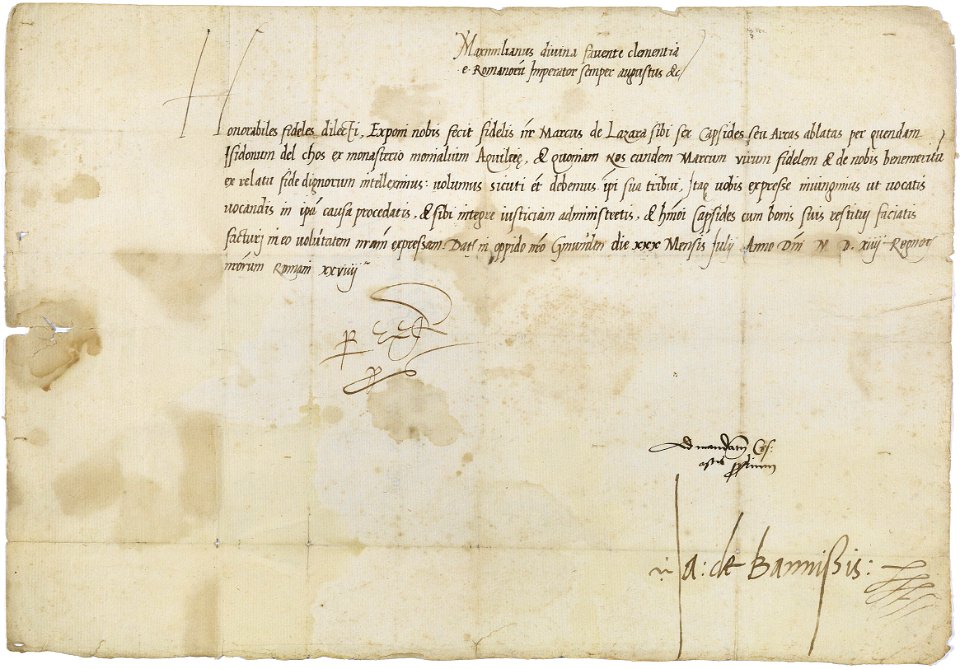 Maximilianus divina favente clementia
e. Romanorũ Imperator semper augustus &c
Honorabiles fideles dilecti, Exponi nobis fecit fidelis nr̃ Marcus de Lazara sibi sex Capsides seu Arcas ablatas per quendam
Isidorum del chos ex monasterio monialium Aquileę, & quoniam Nos eundem Marcum virum fidelem & de nobis benemeritũ
ex relatu fide dignorum intelleximus: volumus sicuti et debemus ip̃i sua tribui, Itaq̃ vobis expresse iniungimus ut vocatis
vocandis in ip̃a causa procedatis, & sibi integre iusticiam administretis, & hm̃oi Capsides cum bonis suis restitui faciatis
facturi in eo volũtatem nr̃am expressam. Dat̃ in oppido nr̃o Gmunden die xxx Mensis Julij Anno Dñi M D. xiiij Regnor̃
nr̃orum Romani xxviiij
Ad mandatũ Ces:
propriũm
Ja: de Bannissis: